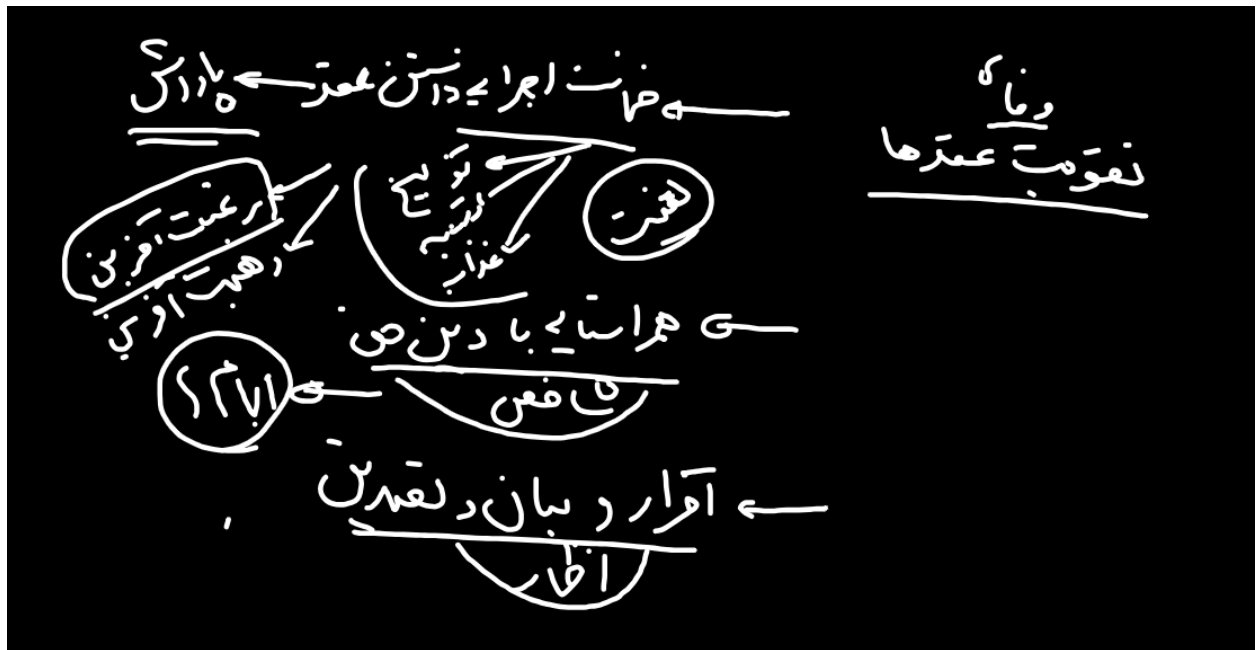 وفاء
تقویت عقدها
ضمانت اجرایی داشتن عقد ← پاداش
لعنت
توبیخ
عذاب
رغبت آفرین
رهبت آفرین
هم راستایی با دین حق
تناقض
اقرار و بیان و تصدیق
اظهار